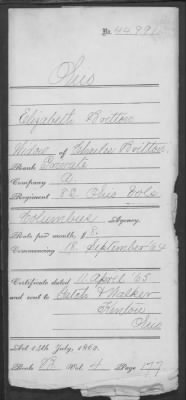 No. 44991
Ohio
Elizabeth Britton
Widow of Charles Britton
Rank Private
Company A.
Regiment 82 Ohio Vols
Columbus Agency.
Rate per month, $ 8.
Commencing 18 September '64
Certificate dated 11 April '65
and sent to & Walker
Kenton
Ohio
Act 14th July, 1862.
Book Vol. 4 Page 177